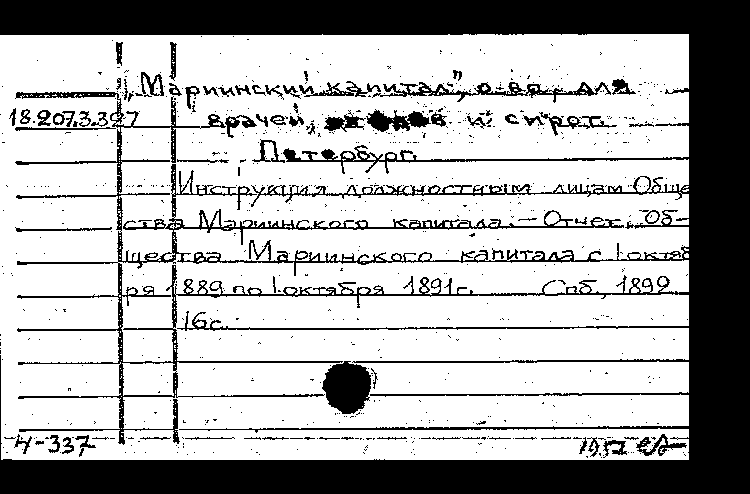 „Мариинский капитал", о-во, для
18.207.3.327 врачей, вдов и сирот.
Петербург.
Инструкция должностным лицам Обще
ства Мариинского капитала. – Отчет Об-
щества Мариинского капитала с 1 октяб
ря 1889 по 1 октября 1891 г. Спб., 1892.
16 с.
4-337 1957